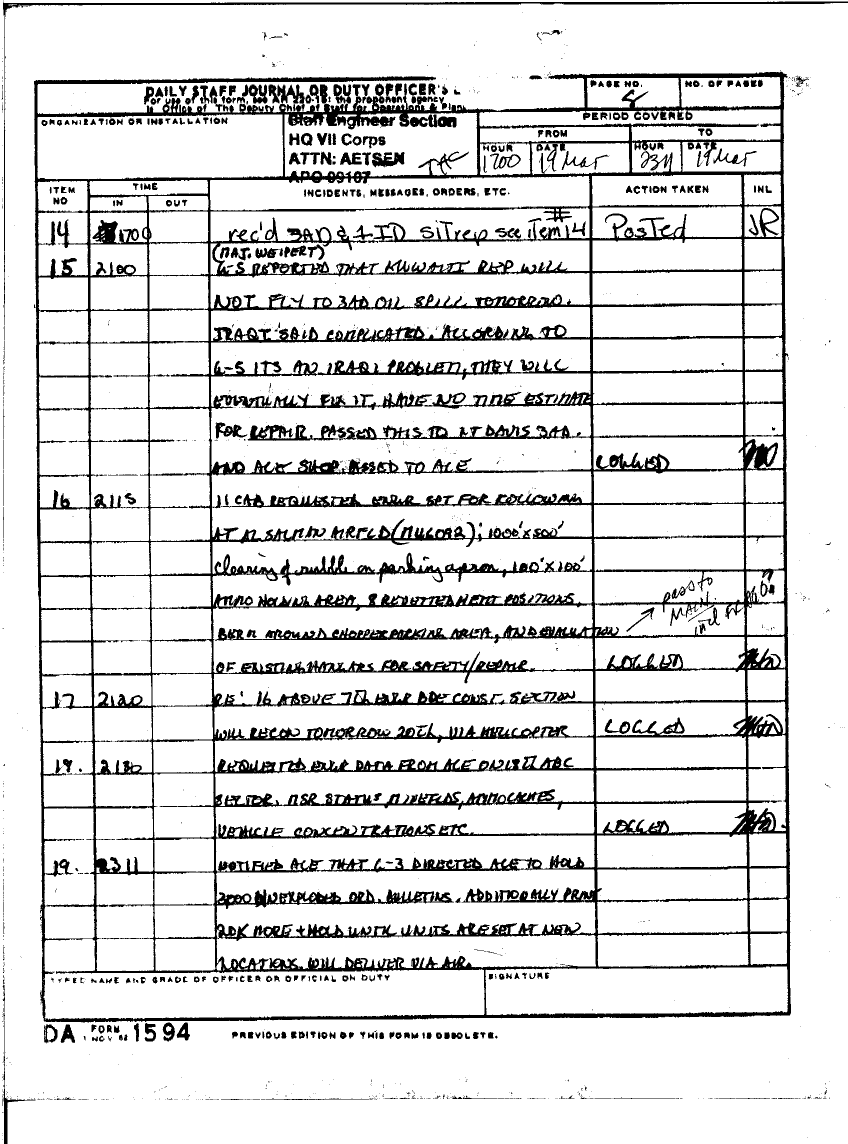 DAILY STAFF JOURNAL OR DUTY OFFICER'S L
For use of this form, see AR 220-15; the proponent agency
is Office of The Deputy Chief of Staff for Operations & Plan
PAGE NO.
8
NO. OF PAGES
ORGANIZATION OR INSTALLATION
Staff Engineer Section
HQ VII Corps
ATTN: AETSEN
APO 09107
TAC
PERIOD COVERED
FROM
TO
HOUR
DATE
HOUR
DATE
1700
19 Mar
2311
19 Mar
ITEM NO
TIME
IN
OUT
INCIDENTS, MESSAGES, ORDERS, ETC.
ACTION TAKEN
INL
14 1700 rec'd 3AD & 1-ID SiTrep see item #14 Posted JR
(MAJ. WEIPERT)
15 2100 G-5 REPORTED THAT KUWAITI REP WILL
NOT FLY TO 3AD OIL SPILL TOMORROW.
IRAQI SAID COMPLICATED. ACCORDING TO
G-5 ITS AN IRAQI PROBLEM, THEY WILL
EVENTUALLY FIX IT, HAVE NO TIME ESTIMATE
FOR REPAIR. PASSED THIS TO LT DAVIS 3AD.
AND ACE SHOP. PASSED TO ACE LOGGED
16 2115 11 CAB REQUESTED ENGR SPT FOR FOLLOWING
AT AL SALMAN AIRFLD ; 1000'X500'
clearing of rubble on parking apron, 100'X100'
AMMO HOLDING AREA, 8 REVETTEMENT POSITIONS,
BERM AROUND CHOPPER PARKING AREA, AND EVALUATION
pass to
MAIN
OF EXISTING HANGARS FOR SAFETY/REPAIR. LOGGED
17 2120 RE: 16 ABOVE 7th ENGR BDE CONST. SECTION
WILL RECON TOMORROW 20th, VIA HELICOPTER LOGGED
18. 2130 REQUESTED ENGR DATA FROM ACE ON ABC
SECTOR. MSR STATUS, MINEFIELDS, AMMO CACHES,
VEHICLE CONCENTRATIONS ETC. LOGGED
19. 2311 NOTIFIED ACE THAT G-3 DIRECTED ACE TO HOLD
3000 UNEXPLODED ORD. BULLETINS. ADDITIONALLY PRINT
20K MORE + HOLD UNTIL UNITS ARE SET AT NEW
LOCATIONS. WILL DELIVER VIA AIR.
TYPED NAME AND GRADE OF OFFICER OR OFFICIAL ON DUTY
SIGNATURE
DA FORM 1594
1 NOV 62
PREVIOUS EDITION OF THIS FORM IS OBSOLETE.